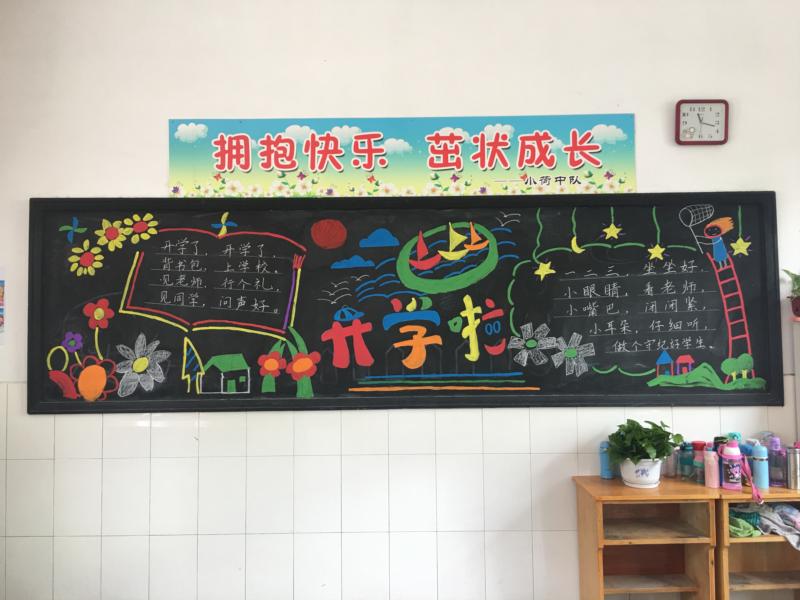 拥抱快乐 茁状成长
——小荷中队
开学了，开学了，
背书包，上学校。
见老师，行个礼，
见同学，问声好。
开学啦
一二三，坐坐好，
小眼睛，看老师，
小嘴巴，闭闭紧，
小耳朵，仔细听，
做个守纪好学生。